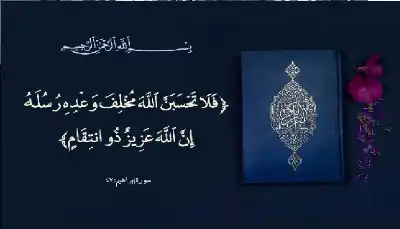 بسم الله الرحمن الرحيم
﴿فَلَا تَحْسَبَنَّ اللَّهَ مُخْلِفَ وَعْدِهِ رُسُلَهُ
إِنَّ اللَّهَ عَزِيزٌ ذُو انْتِقَامٍ﴾
سورة إبراهيم: ٤٧